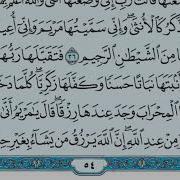 كَرُ كَٱلْأُنثَىٰ ۖ وَإِنِّى سَمَّيْتُهَا مَرْيَمَ وَإِنِّىٓ أُعِي
مِنَ ٱلشَّيْطَٰنِ ٱلرَّجِيمِ ٣٦ فَتَقَبَّلَهَا رَبُّهَا
نۢبَتَهَا نَبَاتًا حَسَنًا وَكَفَّلَهَا زَكَرِيَّا ۖ كُلَّمَا دَخَ
ٱلْمِحْرَابَ وَجَدَ عِندَهَا رِزْقًا ۖ قَالَ يَٰمَرْيَمُ
مِنْ عِندِ ٱللَّهِ ۖ إِنَّ ٱللَّهَ يَرْزُقُ مَن يَشَآءُ بِغَيْرِ حِ
٥٤